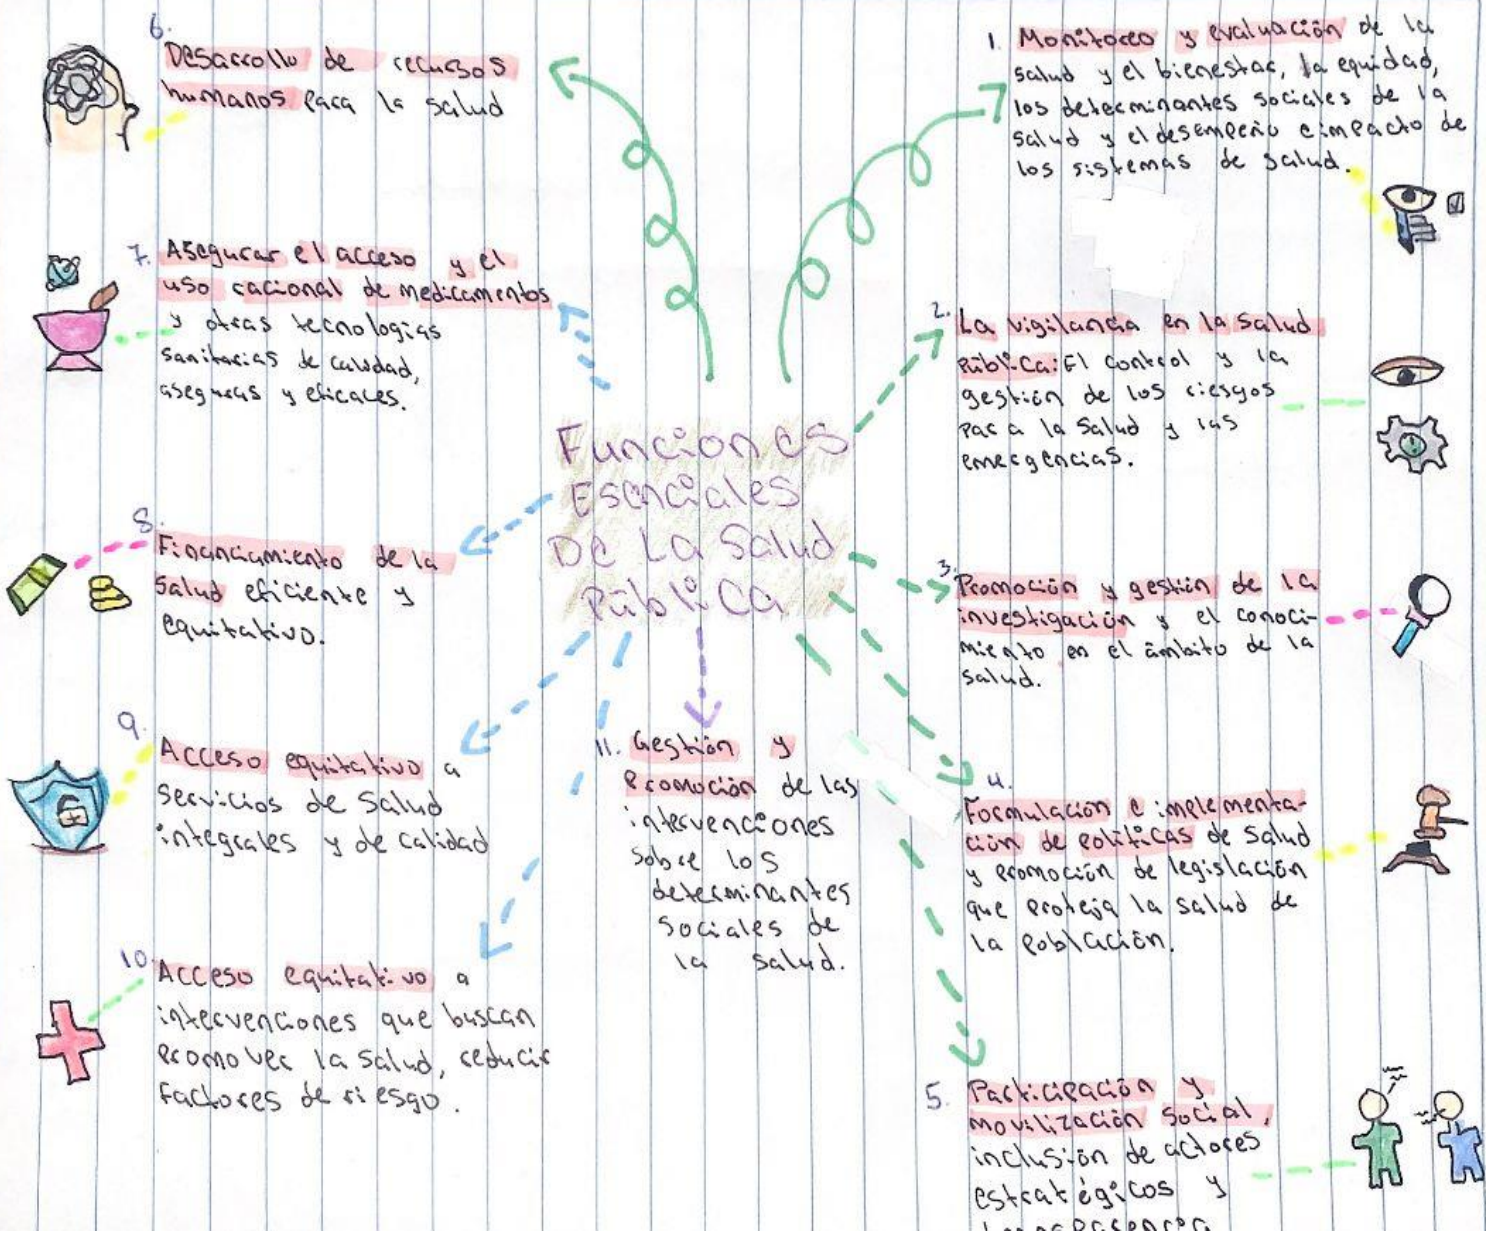 Funciones
Esenciales
De La Salud
Pública
1. Monitoreo y evaluación de la
salud y el bienestar, la equidad,
los determinantes sociales de la
salud y el desempeño e impacto de
los sistemas de salud.
2. La vigilancia en la salud
pública: El control y la
gestión de los riesgos
para la salud y las
emergencias.
3. Promoción y gestión de la
investigación y el conoci-
miento en el ámbito de la
salud.
4.
Formulación e implementa-
ción de políticas de salud
y promoción de legislación
que proteja la salud de
la población.
5. Participación y
movilización social,
inclusión de actores
estratégicos y
transparencia
6.
Desarrollo de recursos
humanos para la salud
7. Asegurar el acceso y el
uso racional de medicamentos
y otras tecnologías
sanitarias de calidad,
aseguras y eficaces.
8.
Financiamiento de la
salud eficiente y
equitativo.
9.
Acceso equitativo a
servicios de salud
integrales y de calidad
10.
Acceso equitativo a
intervenciones que buscan
promover la salud, reducir
factores de riesgo.
11. Gestión y
promoción de las
intervenciones
sobre los
determinantes
sociales de
la salud.